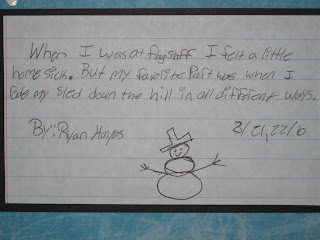 When I was at flagstaff I felt a little
homesick. But my favorite part was when I
rode my sled down the hill in all diffirent ways.
By: Ryan Hayes
2/21,22/10